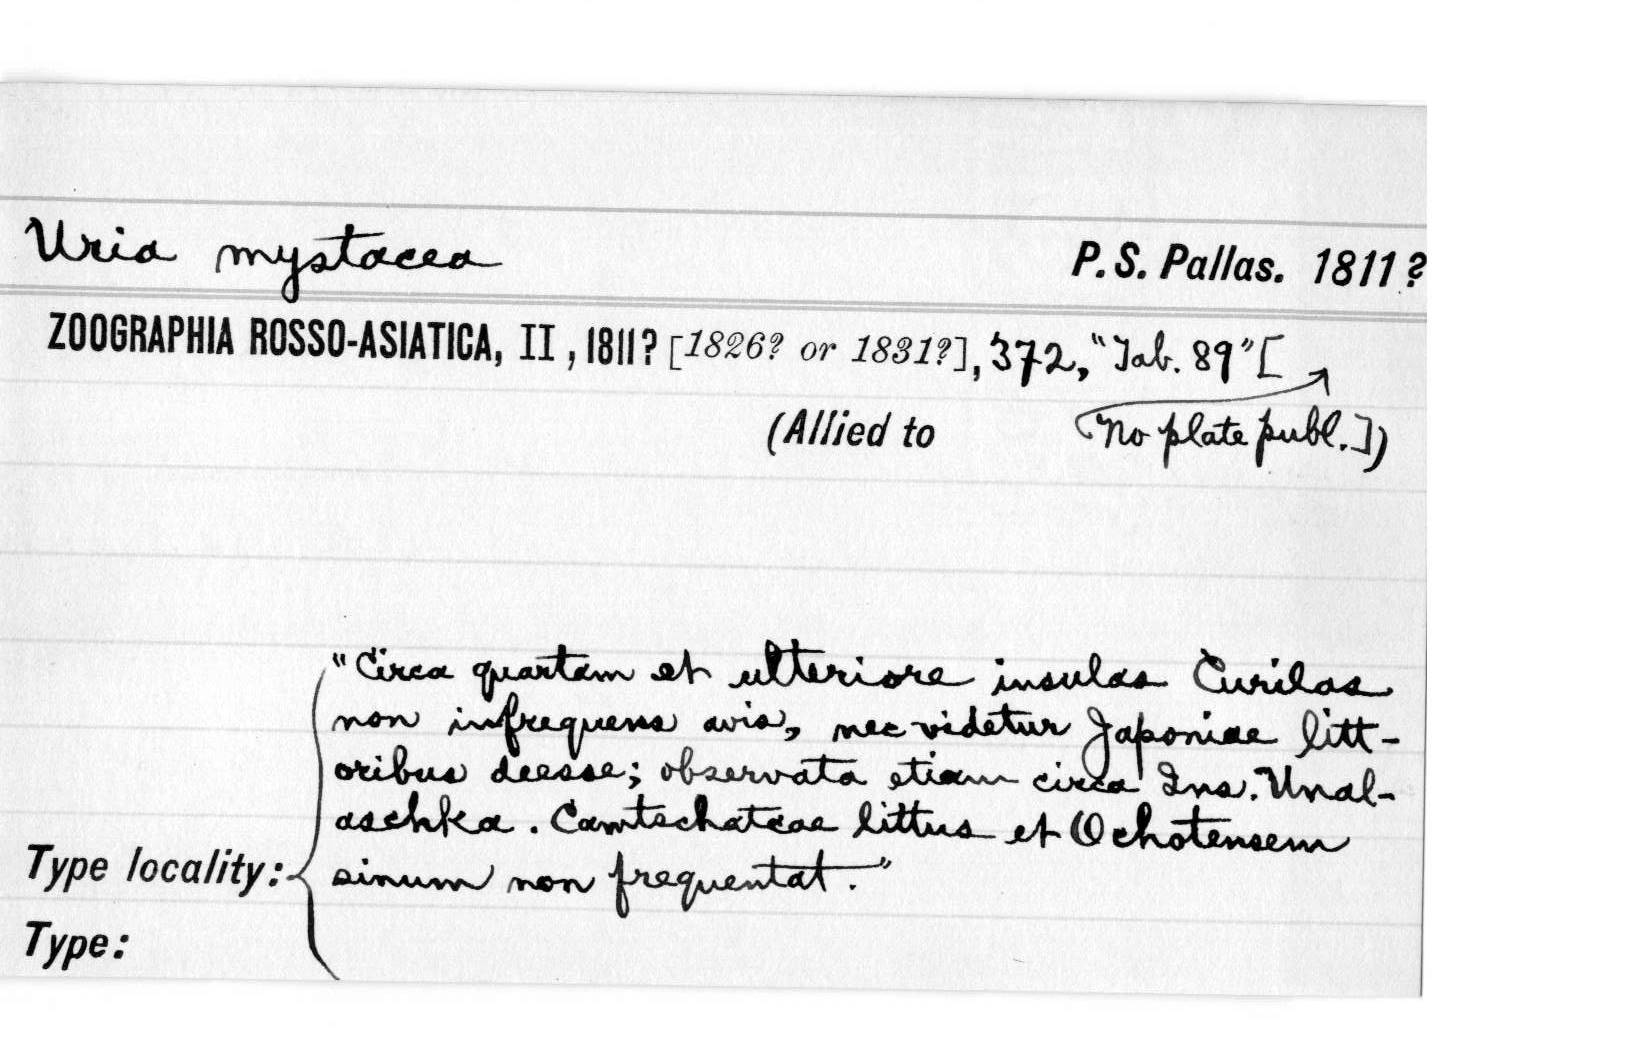 Uria mystacea P. S. Pallas. 1811?
ZOOGRAPHIA ROSSO-ASIATICA, II, 1811? [1826? or 1831?], 372, "Tab. 89" [
(Allied to No plate publ.])
"Circa quartam et ulteriore insulas Curilas
non infrequens avis, nec videtur Japoniae litt-
oribus deesse; observata etiam circa Ins. Unal-
aschka. Camtschatcae littus et Ochotensem
Type locality: sinum non frequentat."
Type: